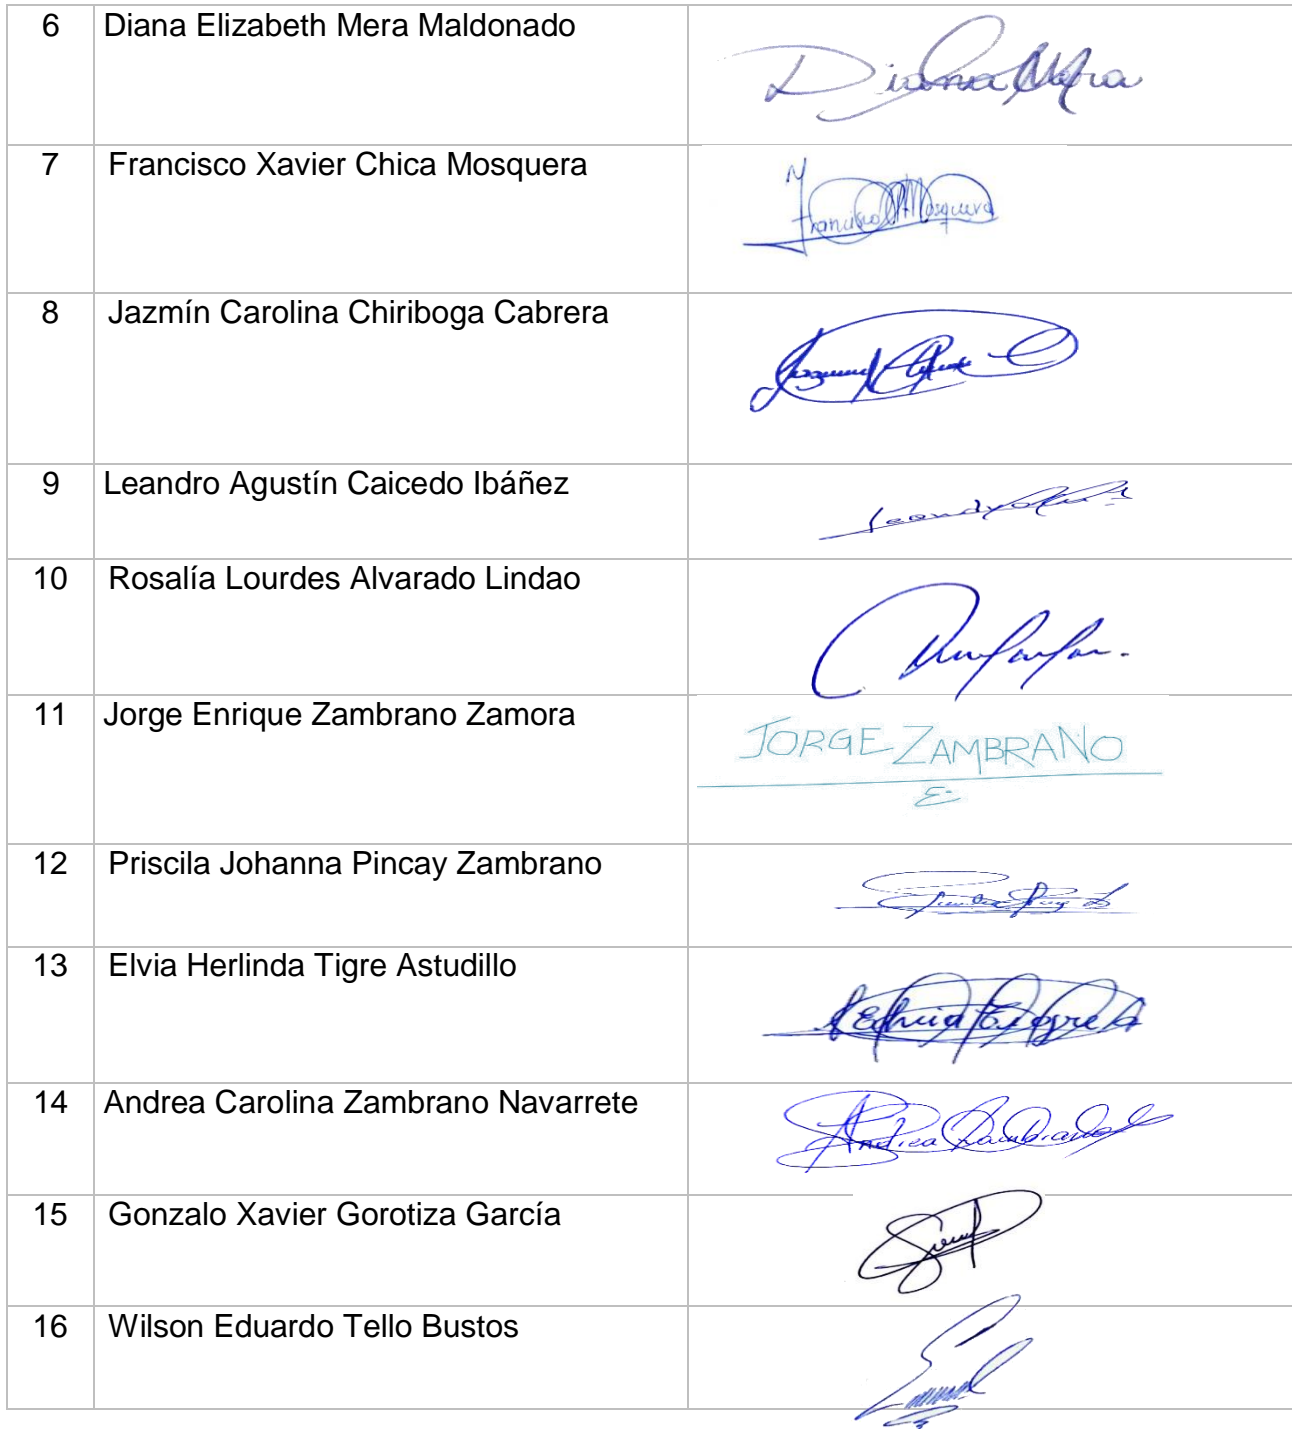 6 Diana Elizabeth Mera Maldonado Diana Mera
7 Francisco Xavier Chica Mosquera Francisco Mosquera
8 Jazmín Carolina Chiriboga Cabrera
9 Leandro Agustín Caicedo Ibáñez
10 Rosalía Lourdes Alvarado Lindao
11 Jorge Enrique Zambrano Zamora JORGE ZAMBRANO
E
12 Priscila Johanna Pincay Zambrano
13 Elvia Herlinda Tigre Astudillo
14 Andrea Carolina Zambrano Navarrete Andrea Zambrano
15 Gonzalo Xavier Gorotiza García
16 Wilson Eduardo Tello Bustos